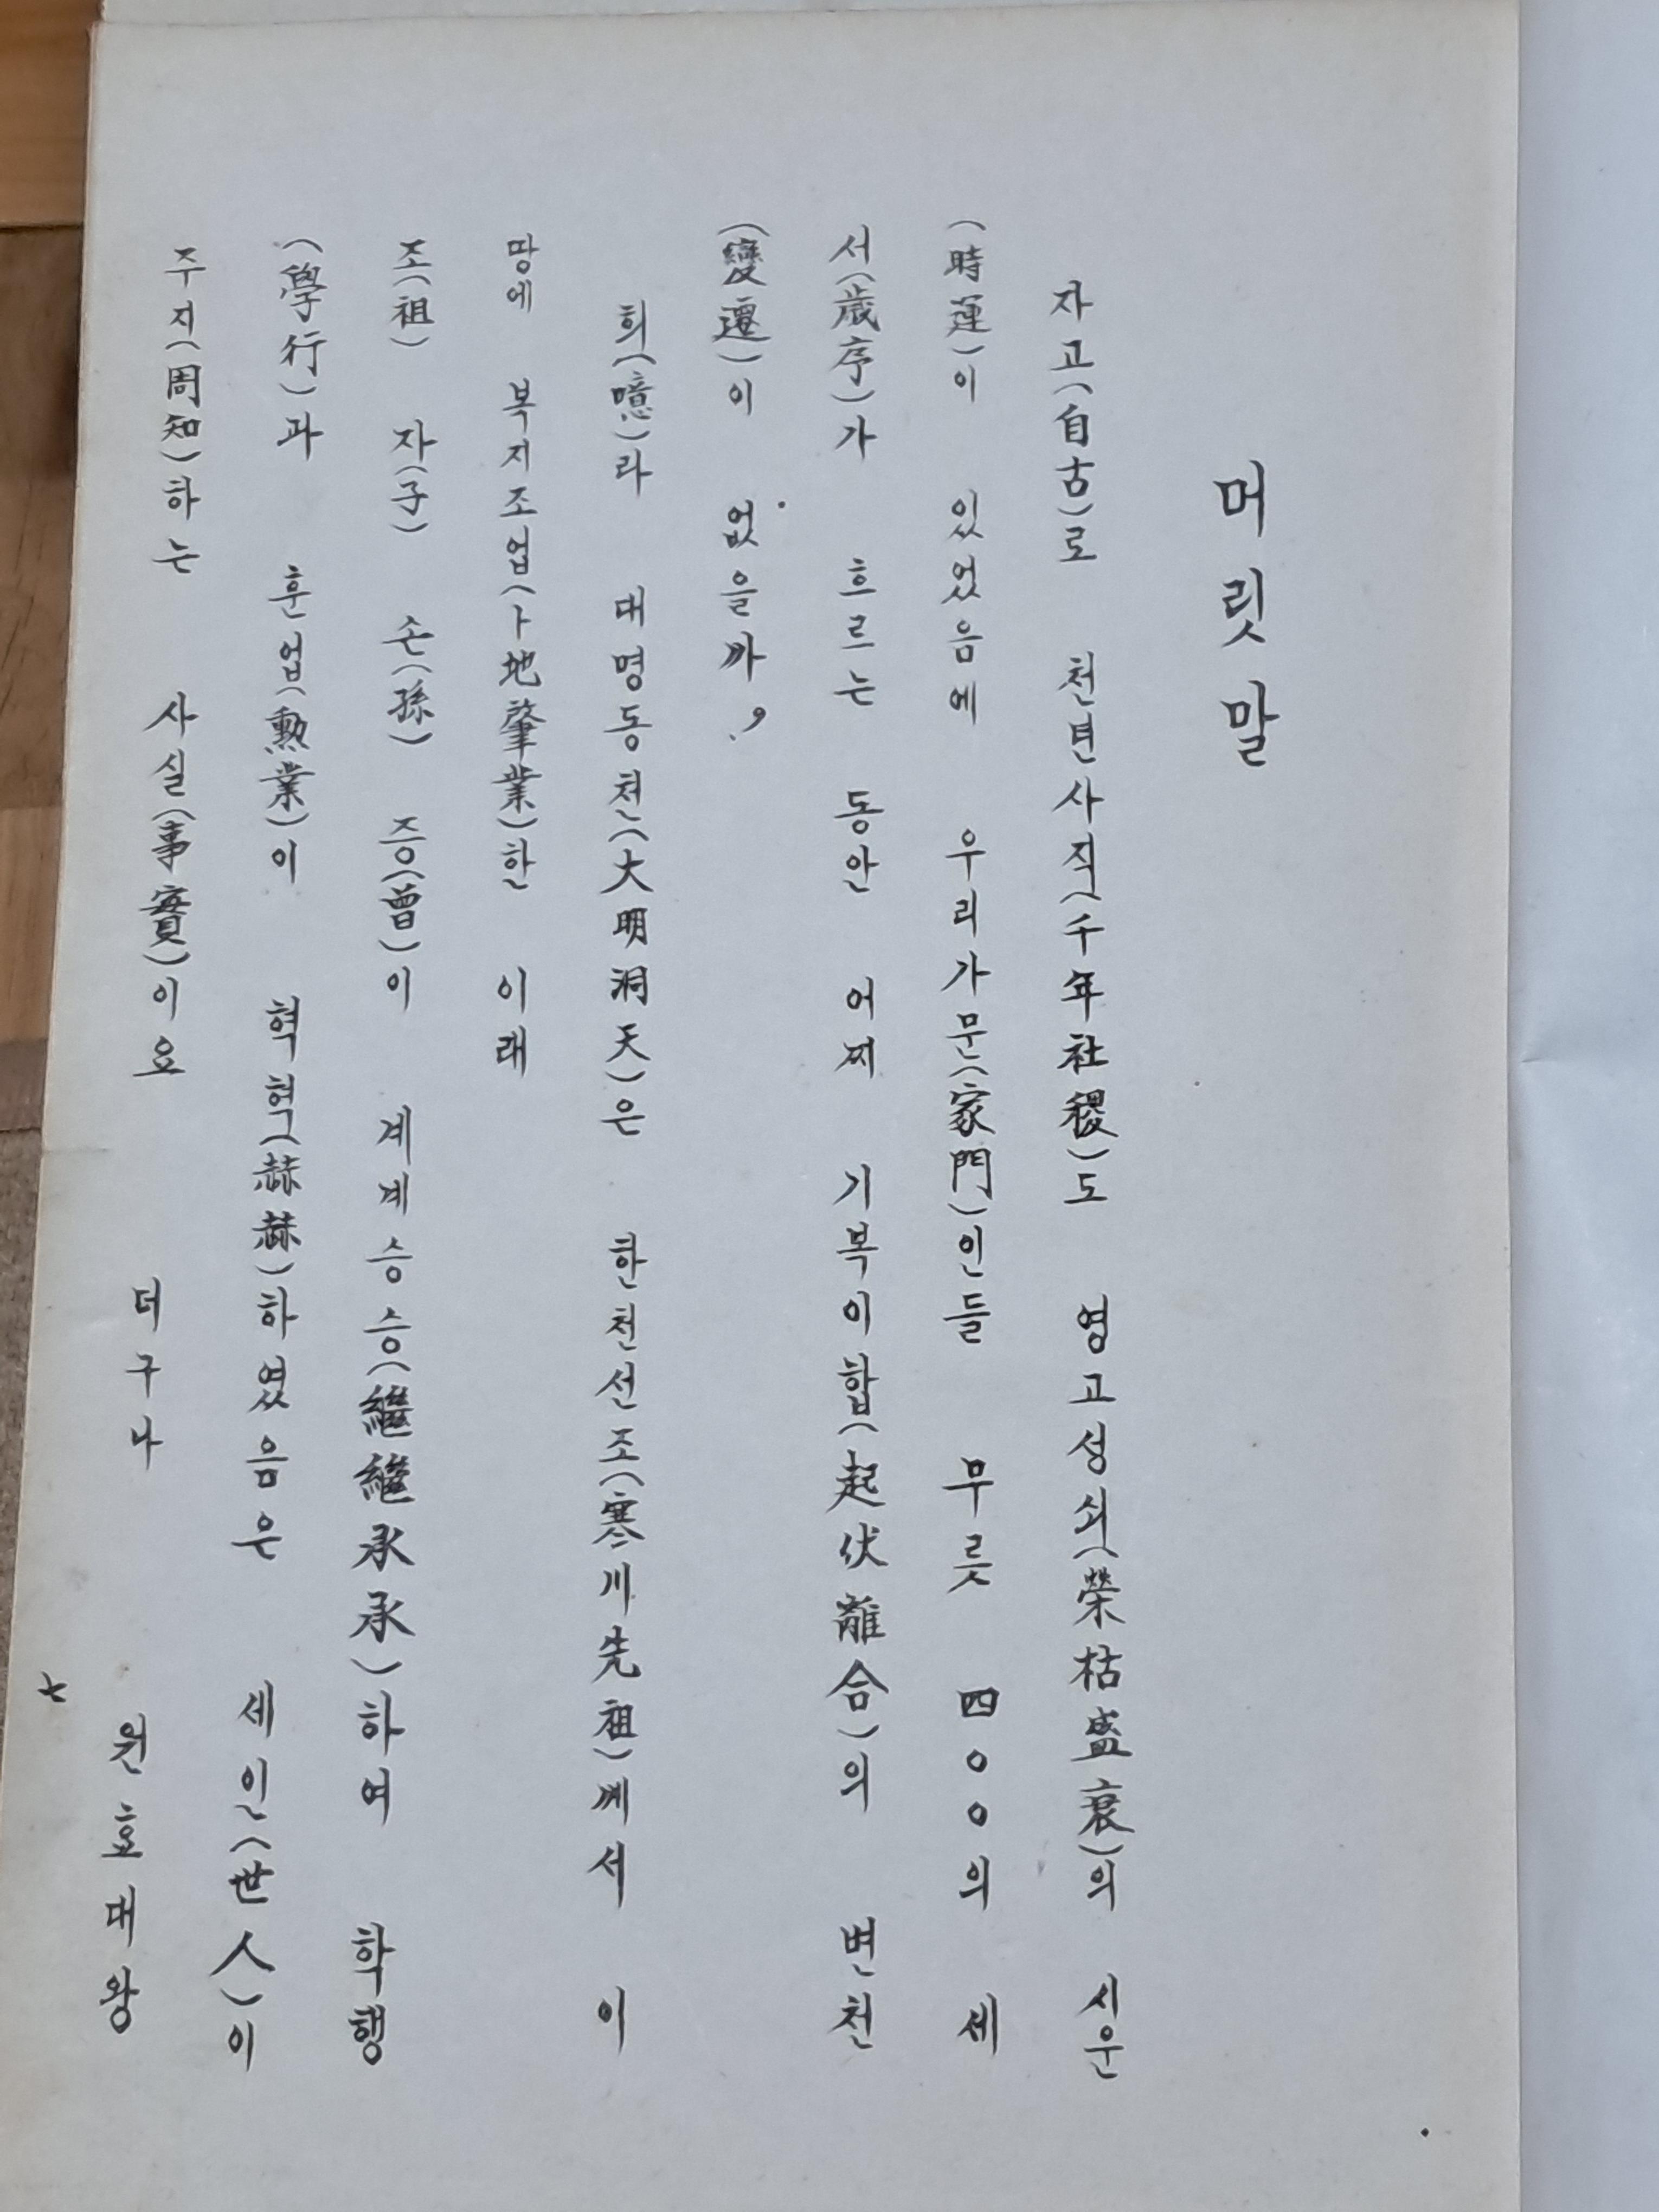 머릿말
자고(自古)로 천년사직(千年社稷)도 영고성쇠(榮枯盛衰)의 시운
(時運)이 있었음에 우리가문(家門)인들 무릇 四〇〇의 세
서(歲序)가 흐르는 동안 어찌 기복이합(起伏離合)의 변천
(變遷)이 없을까,
희(噫)라 대명동천(大明洞天)은 한천선조(寒川先祖)께서 이
땅에 복지조업(卜地肇業)한 이래
조(祖) 자(子) 손(孫) 증(曾)이 계계승승(繼繼承承)하여 학행
(學行)과 훈업(勳業)이 혁혁(赫赫)하였음은 세인(世人)이
주지(周知)하는 사실(事實)이요 더구나 원효대왕
七